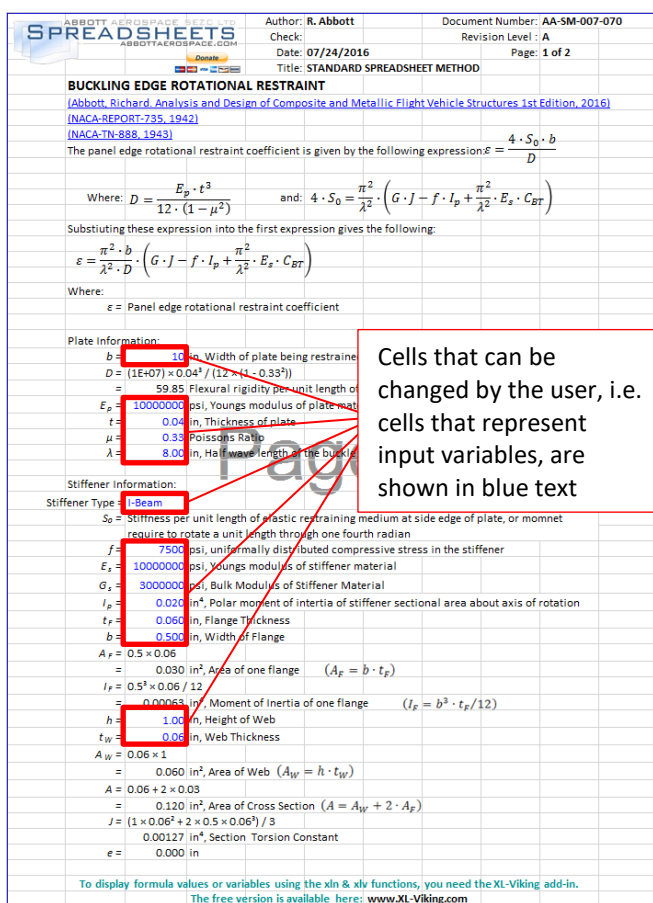 ABBOTT AEROSPACE SEZC LTD
SPREADSHEETS
ABBOTTAEROSPACE.COM
Donate
Author: R. Abbott
Document Number: AA-SM-007-070
Check:
Revision Level : A
Date: 07/24/2016
Page: 1 of 2
Title: STANDARD SPREADSHEET METHOD
BUCKLING EDGE ROTATIONAL RESTRAINT
(Abbott, Richard. Analysis and Design of Composite and Metallic Flight Vehicle Structures 1st Edition, 2016)
(NACA-REPORT-735, 1942)
(NACA-TN-888, 1943)
The panel edge rotational restraint coefficient is given by the following expression: ε = 4 · S₀ · b / D
Where: D = E_p · t³ / 12 · (1 − μ²) and: 4 · S₀ = π²/λ² · (G · J − f · I_p + π²/λ² · E_s · C_BT)
Substiuting these expression into the first expression gives the following:
ε = π² · b / λ² · D · (G · J − f · I_p + π²/λ² · E_s · C_BT)
Where:
ε = Panel edge rotational restraint coefficient
Plate Information:
b = 10 in, Width of plate being restraine
D = (1E+07) × 0.04³ / (12 × (1 - 0.33²))
= 59.85 Flexural rigidity per unit length of
E_p = 10000000 psi, Youngs modulus of plate mat
t = 0.04 in, Thickness of plate
μ = 0.33 Poissons Ratio
λ = 8.00 in, Half wave length of the buckle
Page
Cells that can be
changed by the user, i.e.
cells that represent
input variables, are
shown in blue text
Stiffener Information:
Stiffener Type = I-Beam
S₀ = Stiffness per unit length of elastic restraining medium at side edge of plate, or momnet
require to rotate a unit length through one fourth radian
f = 7500 psi, uniformally distributed compressive stress in the stiffener
E_s = 10000000 psi, Youngs modulus of stiffener material
G_s = 3000000 psi, Bulk Modulus of Stiffener Material
I_p = 0.020 in⁴, Polar moment of intertia of stiffener sectional area about axis of rotation
t_F = 0.060 in, Flange Thickness
b = 0.500 in, Width of Flange
A_F = 0.5 × 0.06
= 0.030 in², Area of one flange (A_F = b · t_F)
I_F = 0.5³ × 0.06 / 12
= 0.00063 in⁴, Moment of Inertia of one flange (I_F = b³ · t_F/12)
h = 1.00 in, Height of Web
t_W = 0.06 in, Web Thickness
A_W = 0.06 × 1
= 0.060 in², Area of Web (A_W = h · t_W)
A = 0.06 + 2 × 0.03
= 0.120 in², Area of Cross Section (A = A_W + 2 · A_F)
J = (1 × 0.06³ + 2 × 0.5 × 0.06³) / 3
0.00127 in⁴, Section Torsion Constant
e = 0.000 in
To display formula values or variables using the xln & xlv functions, you need the XL-Viking add-in.
The free version is available here: www.XL-Viking.com